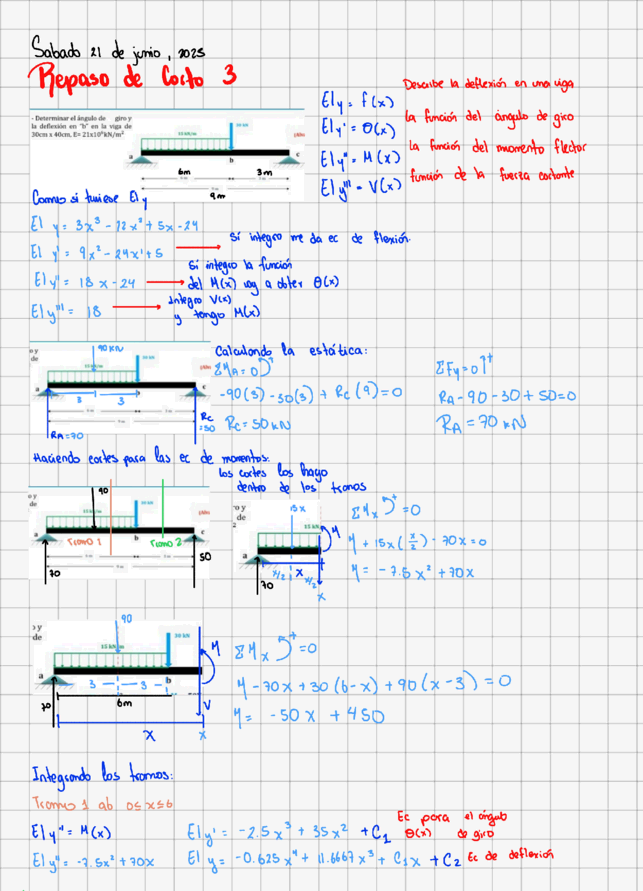 Sabado 21 de junio, 2025
Repaso de Corto 3
Describe la deflexión en una viga
- Determinar el ángulo de giro y
la deflexión en "b" en la viga de
30cm x 40cm. E= 21x10⁶kN/m²
30 kN
15 kN/m
a b c
6m 3m
9m
EI y = f(x)
EI y' = θ(x) la función del ángulo de giro
EI y'' = M(x) la función del momento flector
EI y''' = V(x) función de la fuerza cortante
Como si tuviese EI y
EI y = 3x³ - 12x² + 5x - 24
EI y' = 9x² - 24x' + 5 → Si integro me da ec de flexión.
EI y'' = 18x - 24 → Si integro la función
del M(x) voy a obter θ(x)
EI y''' = 18 → Integro V(x)
y tengo M(x)
o y
de
90 KN
30 kN
a b c
3 3
RA=70
Rc
=50
Calculando la estática:
ΣMA = 0
-90(3) - 30(3) + Rc(9) = 0
Rc = 50 kN
ΣFy = 0 ↑+
RA - 90 - 30 + 50 = 0
RA = 70 kN
Haciendo cortes para las ec de momentos:
los cortes los hago
dentro de los tramos
o y
de
90
30 kN
a b c
Tramo 1 Tramo 2
70 50
o y
de
15x
15 kN
M
a
x/2 x x/2
70 x
ΣMx + = 0
M + 15x(x/2) - 70x = 0
M = -7.5x² + 70x
o y
de
90
15 kN/m 30 kN
M
a b
3 3
70 6m V
x x
ΣMx + = 0
M - 70x + 30(6-x) + 90(x-3) = 0
M = -50x + 450
Integrando los tramos:
Tramo 1 ab 0≤x≤6
EI y'' = M(x)
EI y' = -2.5x³ + 35x² + C₁ Ec para el angulo
θ(x) de giro
EI y'' = -7.5x² + 70x
EI y = -0.625x⁴ + 11.6667x³ + C₁x + C₂ Ec de deflexión